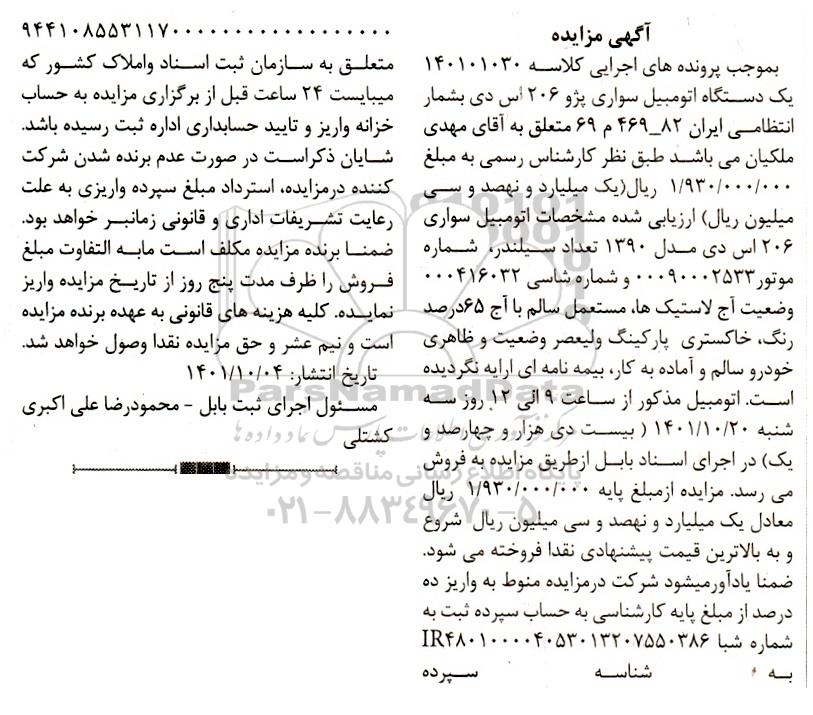 آگهی مزایده
بموجب پرونده های اجرایی کلاسه ۱۴۰۱۰۱۰۳۰
یک دستگاه اتومبیل سواری پژو ۲۰۶ اس دی بشمار
انتظامی ایران ۸۲_۴۶۹ م ۶۹ متعلق به آقای مهدی
ملکیان می باشد طبق نظر کارشناس رسمی به مبلغ
۱/۹۳۰/۰۰۰/۰۰۰ ریال(یک میلیارد و نهصد و سی
میلیون ریال) ارزیابی شده مشخصات اتومبیل سواری
۲۰۶ اس دی مدل ۱۳۹۰ تعداد سیلندر، شماره
موتور۰۰۰۹۰۰۰۲۵۳۳ و شماره شاسی ۰۰۰۴۱۶۰۳۲
وضعیت آج لاستیک ها، مستعمل سالم با آج ۶۵درصد
رنگ، خاکستری پارکینگ ولیعصر وضعیت و ظاهری
خودرو سالم و آماده به کار، بیمه نامه ای ارایه نگردیده
است. اتومبیل مذکور از ساعت ۹ الی ۱۲ روز سه
شنبه ۱۴۰۱/۱۰/۲۰ ( بیست دی هزار و چهارصد و
یک) در اجرای اسناد بابل ازطریق مزایده به فروش
می رسد. مزایده ازمبلغ پایه ۱/۹۳۰/۰۰۰/۰۰۰ ریال
معادل یک میلیارد و نهصد و سی میلیون ریال شروع
و به بالاترین قیمت پیشنهادی نقدا فروخته می شود.
ضمنا یادآورمیشود شرکت درمزایده منوط به واریز ده
درصد از مبلغ پایه کارشناسی به حساب سپرده ثبت به
شماره شبا IR۴۸۰۱۰۰۰۰۴۰۵۳۰۱۳۲۰۷۵۵۰۳۸۶
به شناسه سپرده
۹۴۴۱۰۸۵۵۳۱۱۷۰۰۰۰۰۰۰۰۰۰۰۰۰۰۰۰۰۰
متعلق به سازمان ثبت اسناد واملاک کشور که
میبایست ۲۴ ساعت قبل از برگزاری مزایده به حساب
خزانه واریز و تایید حسابداری اداره ثبت رسیده باشد.
شایان ذکراست در صورت عدم برنده شدن شرکت
کننده درمزایده، استرداد مبلغ سپرده واریزی به علت
رعایت تشریفات اداری و قانونی زمانبر خواهد بود.
ضمنا برنده مزایده مکلف است مابه التفاوت مبلغ
فروش را ظرف مدت پنج روز از تاریخ مزایده واریز
نماید. کلیه هزینه های قانونی به عهده برنده مزایده
است و نیم عشر و حق مزایده نقدا وصول خواهد شد.
تاریخ انتشار: ۱۴۰۱/۱۰/۰۴
مسئول اجرای ثبت بابل – محمودرضا علی اکبری
کشتلی
ParsNamadData
پایگاه اطلاع رسانی مناقصه و مزایده
۰۲۱-۸۸۳۴۹۶۷۰-۵